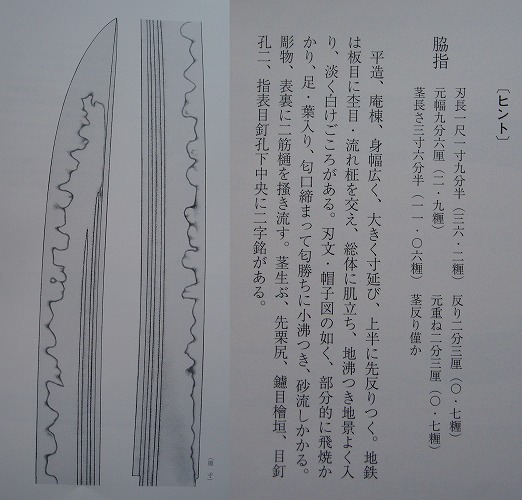 〔ヒント〕
脇指
刃長一尺一寸九分半（三六・二糎）　反り二分三厘（〇・七糎）
元幅九分六厘（二・九糎）　元重ね二分三厘（〇・七糎）
茎長さ三寸六分半（一一・〇六糎）　茎反り僅か
平造、庵棟、身幅広く、大きく寸延び、上半に先反りつく。地鉄
は板目に杢目・流れ柾を交え、総体に肌立ち、地沸つき地景よく入
り、淡く白けごころがある。刃文・帽子図の如く、部分的に飛焼か
かり、足・葉入り、匂口締まって匂勝ちに小沸つき、砂流しかかる。
彫物、表裏に二筋樋を掻き流す。茎生ぶ、先栗尻、鑢目檜垣、目釘
孔二、指表目釘孔下中央に二字銘がある。